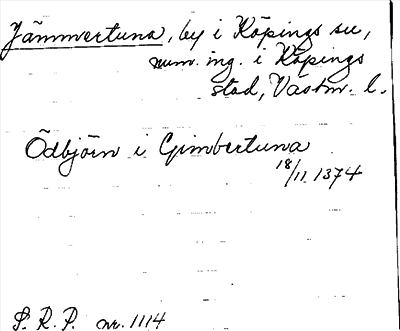 Jämmertuna, by i Köpings su,
num. ing. i Köpings
stad, Västm. l.
Ödbjörn i Gimbertuna
18/11 1374
S. R. P. nr. 1114